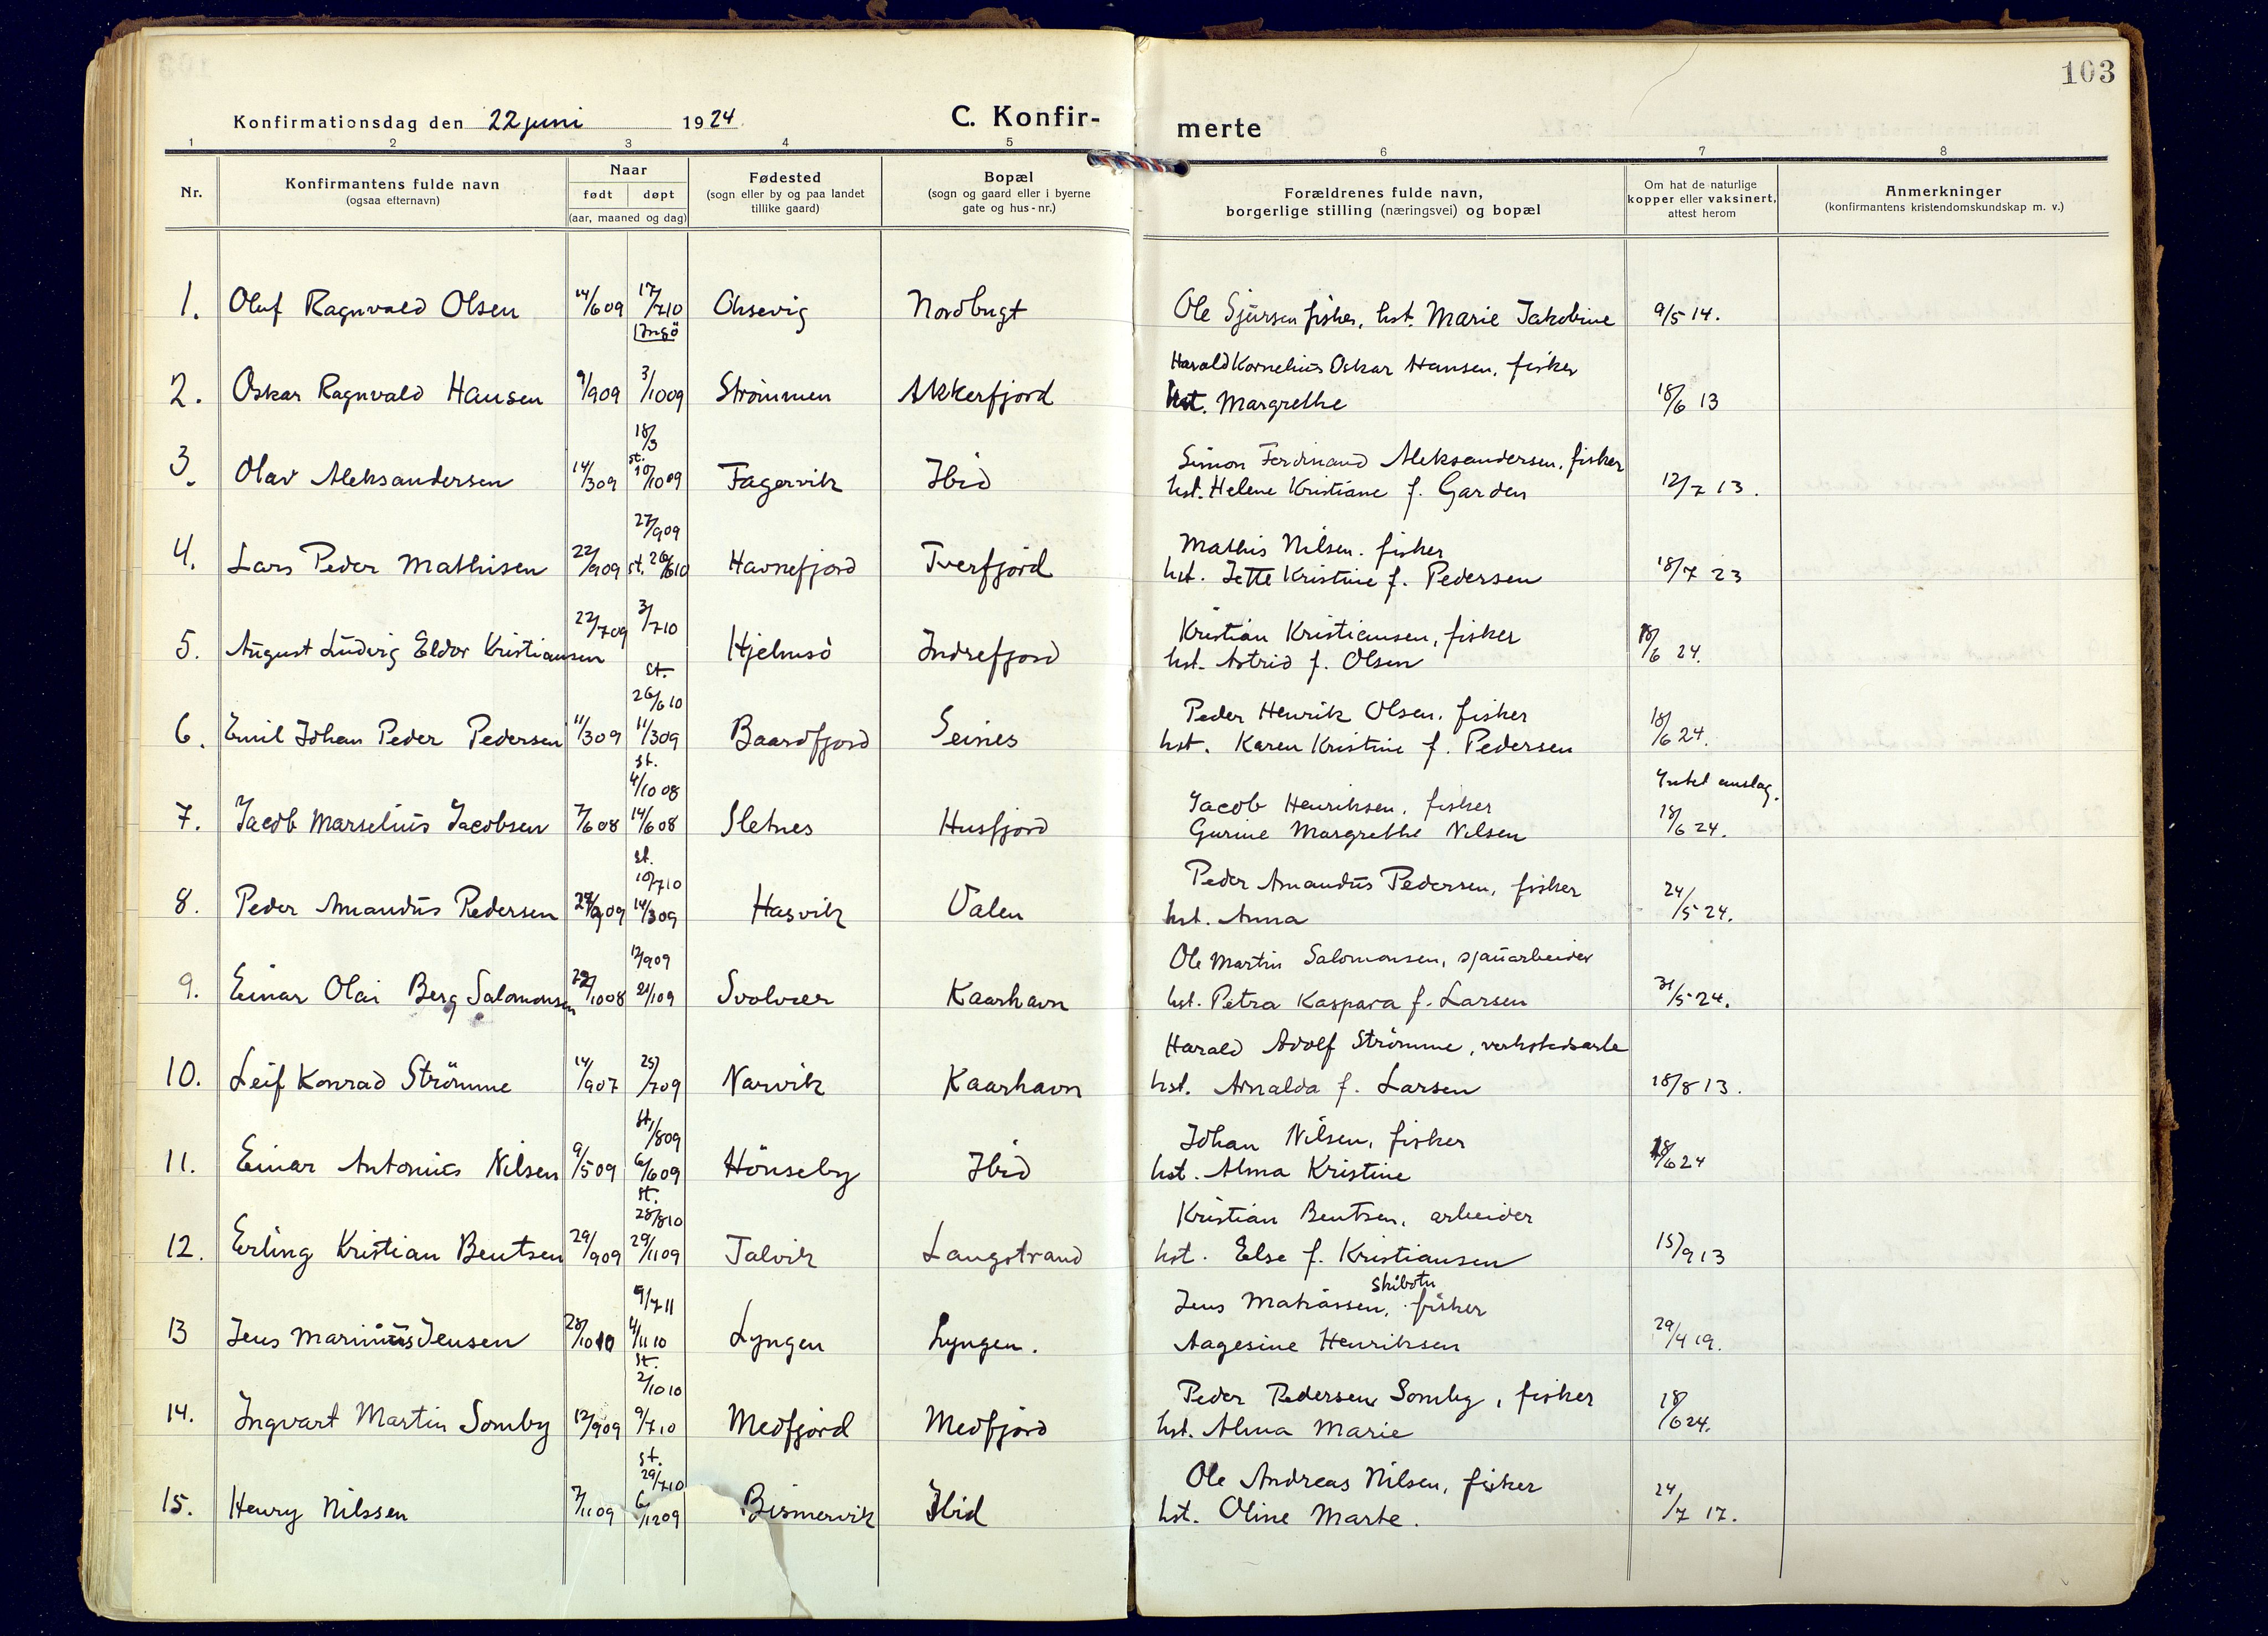 103
Konfirmationsdag den 22 juni 1924
C. Konfir-
merte
1 2 3 4 5 6 7 8
Nr.
Konfirmantens fulde navn
(ogsaa efternavn)
Naar
født døpt
(aar, maaned og dag)
Fødested
(sogn eller by og paa landet
tillike gaard)
Bopæl
(sogn og gaard eller i byerne
gate og hus-nr.)
Forældrenes fulde navn,
borgerlige stilling (næringsvei) og bopæl
Om hat de naturlige
kopper eller vaksinert,
attest herom
Anmerkninger
(konfirmantens kristendomskundskap m. v.)
1. Oluf Ragnvald Olsen 14/6 09 17/7 10 Oksevig Nordbugt Ole Sjursen fisker, hst. Marie Jakobine 9/5 14.
Ingö
Harald Kornelius Oskar Hansen, fisker
2. Oskar Ragnvald Hansen 9/9 09 3/10 09 Strömmen Akkerfjord hst. Margrethe 18/6 13
18/3
Simon Ferdinand Aleksandersen, fisker
3. Olav Aleksandersen 14/3 09 st. 10/10 09 Fagervik Ibid hst. Helene Kristiane f. Garden 12/7 13.
27/9 09
Mathis Nilsen. fisker
4. Lars Peder Mathisen 22/9 09 st. 26/6 10 Havnefjord Tverfjord hst. Jette Kristine f. Pedersen 18/7 23
Kristian Kristiansen, fisker
5. August Ludvig Eldor Kristiansen 22/7 09 3/7 10 Hjelmsö Indrefjord hst. Astrid f. Olsen 18/6 24.
st.
26/6 10
Peder Henrik Olsen. fisker
6. Emil Johan Peder Pedersen 11/3 09 11/3 09 Baardfjord Seines hst. Karen Kristine f. Pedersen 18/6 24.
st.
4/10 08
Jacob Henriksen, fisker
Intet anslag.
7. Jacob Marselius Jacobsen 7/6 08 14/6 08 Sletnes Husfjord Gurine Margrethe Nilsen 18/6 24.
st.
10/7 10
Peder Amandus Pedersen, fisker
8. Peder Amandus Pedersen 09 14/3 09 Hasvik Valen hst. Anna 24/5 24.
12/9 09
Ole Martin Salomonsen, sjauarbeider
9. Einar Olai Berg Salomonsen 22/10 08 21/1 09 Svolvær Kaarhavn hst. Petra Kaspara f. Larsen 31/5 24.
Harald Adolf Strömme, verkstedsarb
10. Leif Konrad Strömme 14/9 07 25/7 09 Narvik Kaarhavn hst. Arnalda f. Larsen 18/8 13.
st. 1/8 09
Johan Nilsen, fisker
11. Einar Antonius Nilsen 9/5 09 6/6 09 Hönseby Ibid hst. Alma Kristine 18/6 24
st.
28/8 10
Kristian Bentsen, arbeider
12. Erling Kristian Bentsen 29/9 09 29/11 09 Talvik Langstrand hst. Else f. Kristiansen 15/9 13
Skibotn
9/7 11
Jens Matiassen, fisker
13 Jens Marinius Jensen 28/10 10 4/11 10 Lyngen Lyngen. Aagesine Henriksen 29/4 19.
st.
2/10 10
Peder Pedersen Somby, fisker
14. Ingvart Martin Somby 12/9 09 9/7 10 Medfjord Medfjord hst. Alma Marie 18/6 24.
st.
29/7 10
Ole Andreas Nilsen, fisker
15. Henry Nilssen 7/11 09 6/12 09 Bismervik Ibid hst. Oline Marte. 24/7 17.